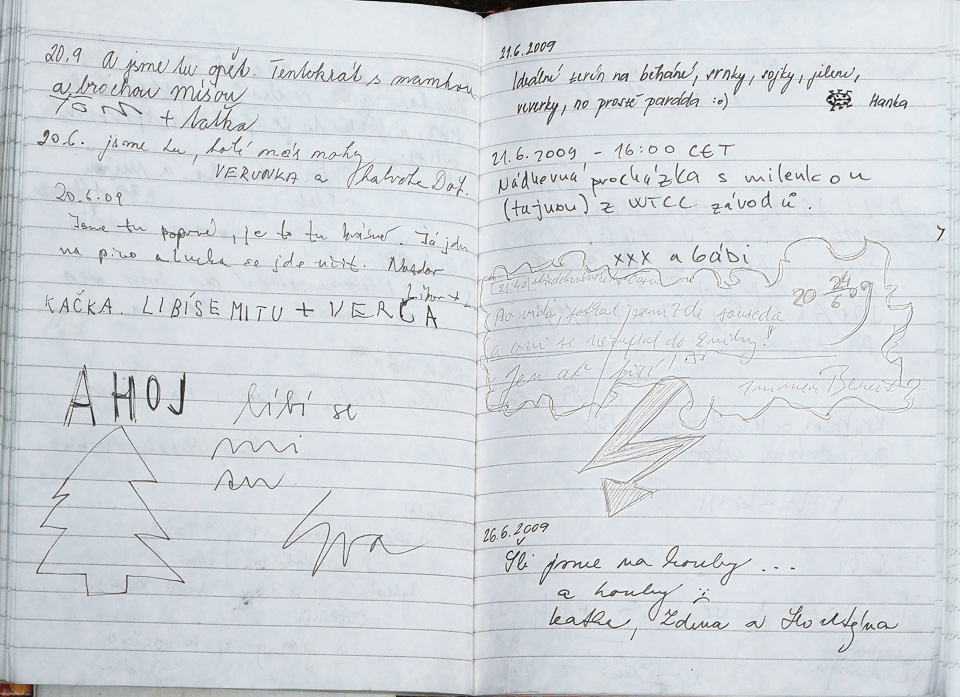 20.9 A jsme tu opět. Tentokrát s mamkou
a trochou
+ taťka
20.6. jsme tu, bolí nás nohy
VERUNKA a
20.6.09
Jsme tu poprvé, je to tu krásné. Já jdu
na pivo a Lucka se jde učit. Nazdar
KAČKA. LIBÍSE MITU + VERČA
AHOJ
líbí se
mi
21.6.2009
Ideální terén na běhání, srnky, sojky, jeleni,
veverky, no prostě paráda :o)
Hanka
21.6.2009 - 16:00 CET
Nádherná procházka s milenkou
(tajnou) z WTCC závodů.
XXX a Gábi
20 24/6 09
No vida, potkal jsem zde souseda
a ani se nezapsal do knihy!
Jen ať
26.6.2009
Šli jsme na houby ...
a houby
Katka, Zdena a